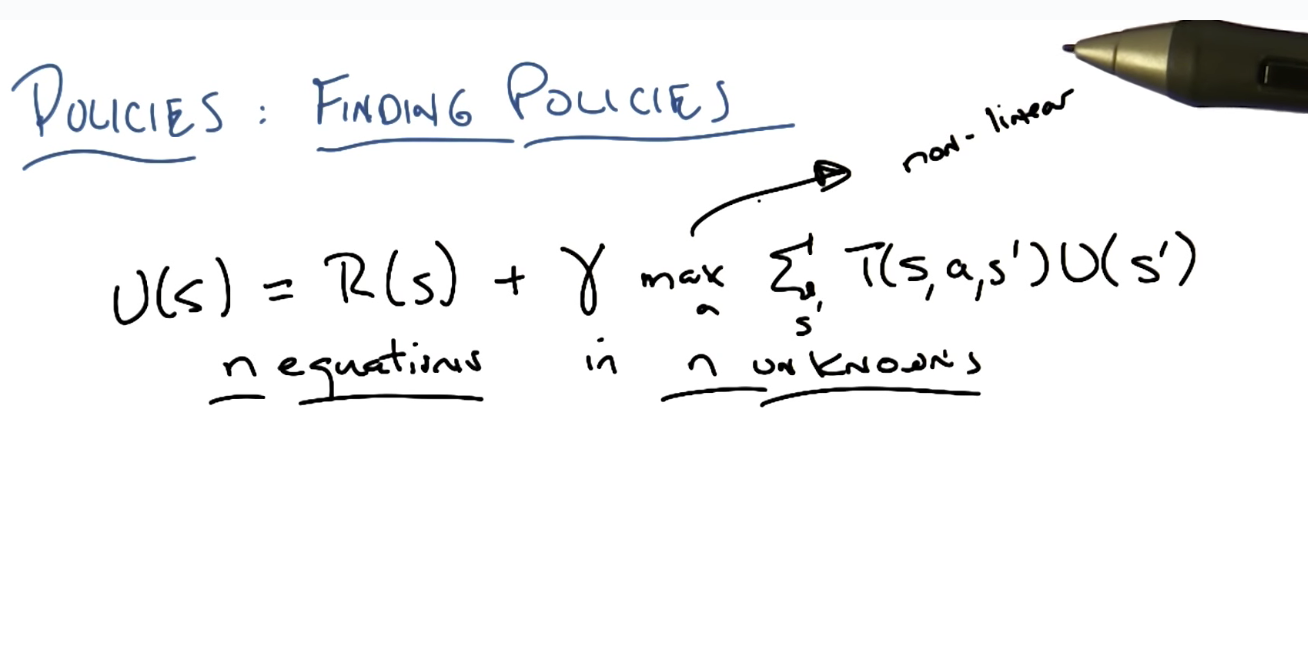 POLICIES : FINDING POLICIES
non-linear
U(s) = R(s) + γ max_a Σ_s' T(s,a,s')U(s')
n equations in n unknowns